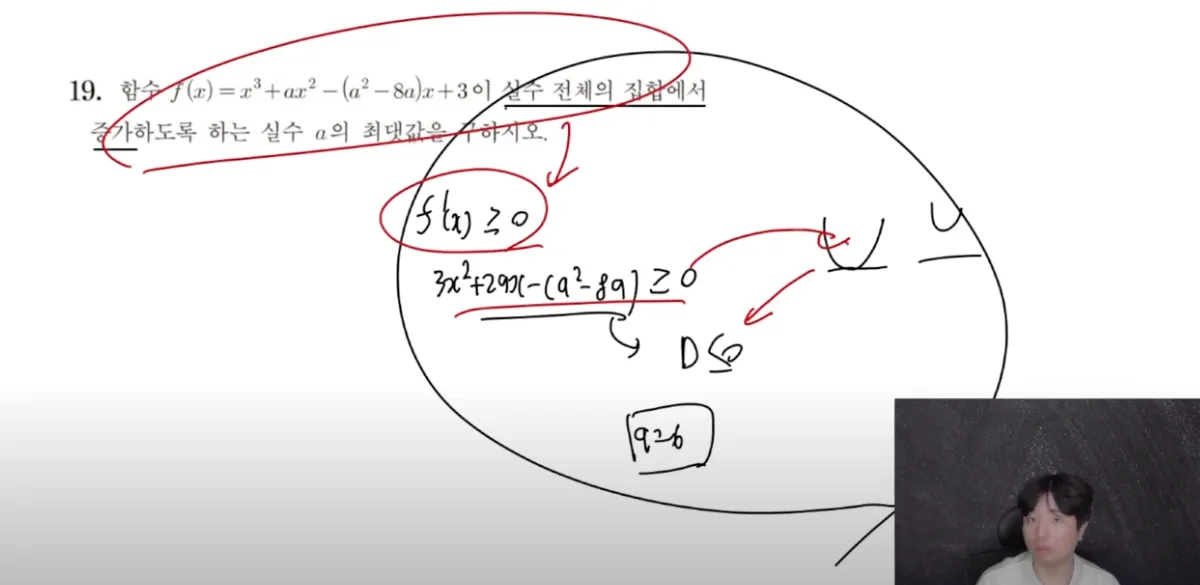 19. 함수 f(x)=x³+ax²-(a²-8a)x+3이 실수 전체의 집합에서
증가하도록 하는 실수 a의 최댓값을 구하시오.
f'(x) ≥ 0
3x²+2ax-(a²-8a) ≥ 0
D ≤ 0
a=6